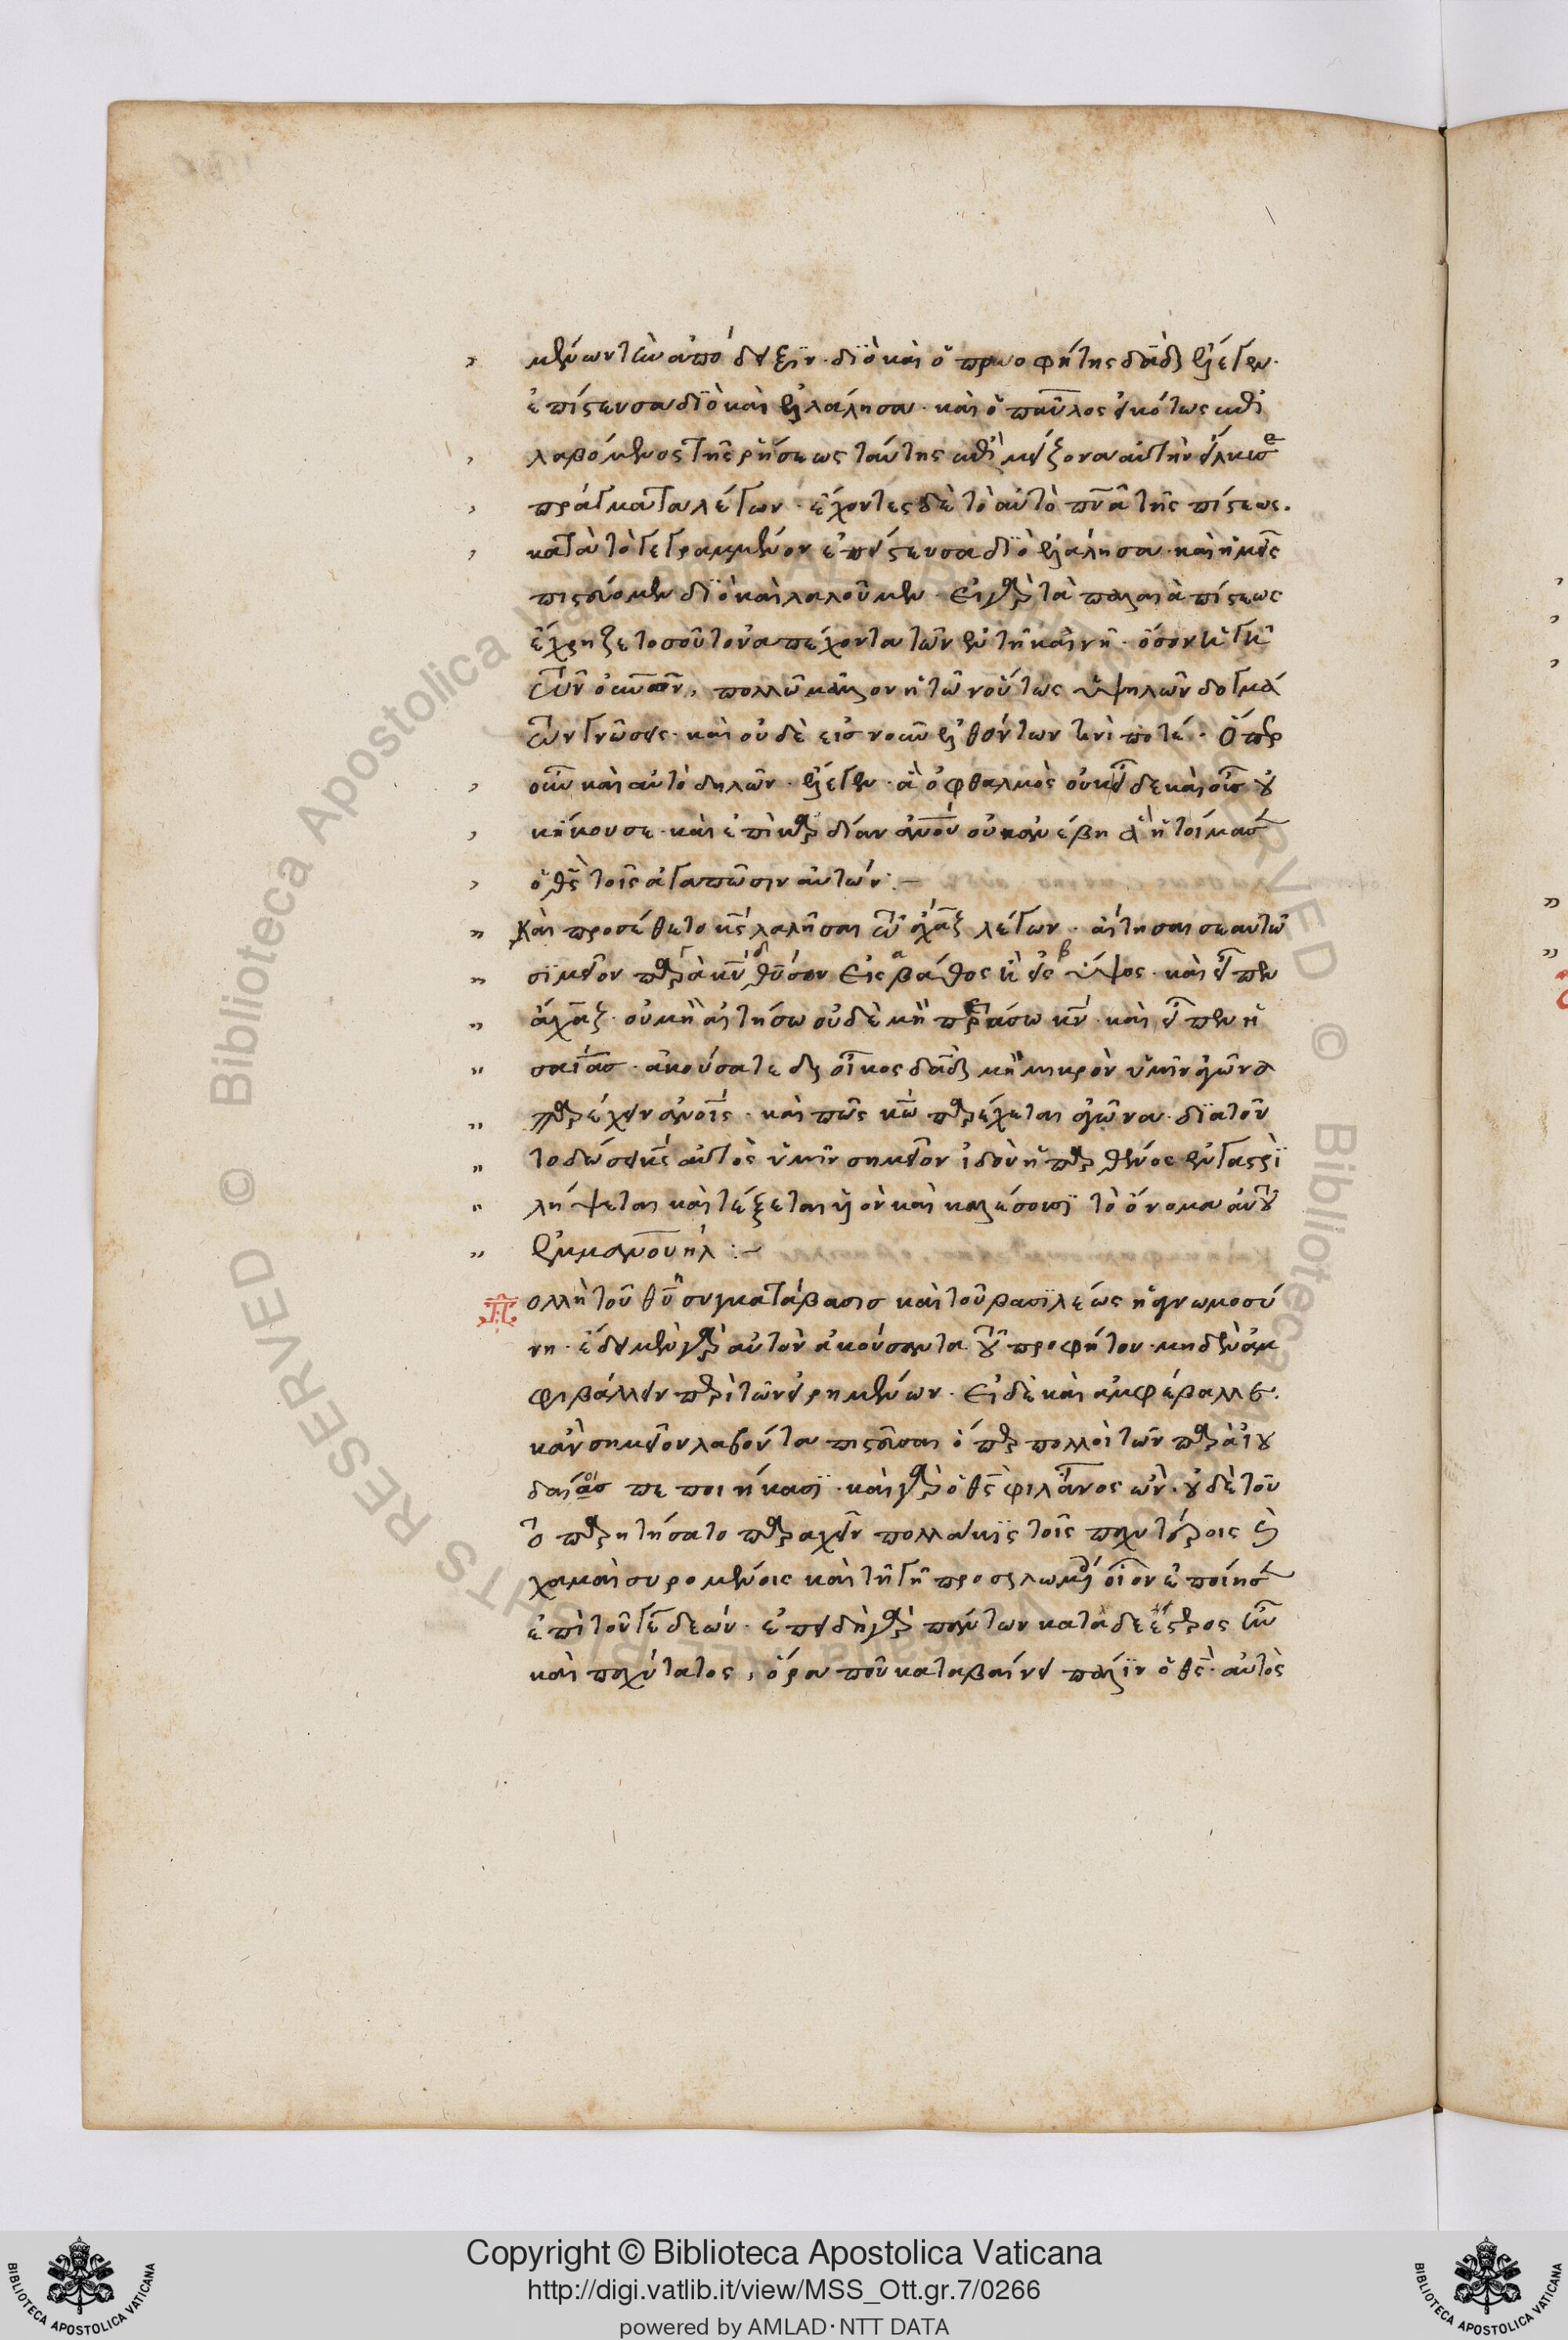 μένων τὴν ἀπόδειξιν· διὸ καὶ ὁ προφήτης δᾱδ ἔλεγεν·
ἐπίστευσα διὸ καὶ ἐλάλησα· καὶ ὁ παῦλος εἰκότως ἐπι
λαβόμενος τῆς ῥήσεως ταύτης ἐπὶ μείζονα αὐτὴν εἵλκυσε
πράγματα λέγων· ἔχοντες δὲ τὸ αὐτὸ πν̄α τῆς πίστεως·
κατὰ τὸ γεγραμμένον ἐπίστευσα διὸ ἐλάλησα· καὶ ἡμεῖς
πιστεύομεν διὸ καὶ λαλοῦμεν· εἰ γὰρ τὰ παλαιὰ πίστεως
ἔχρηζε τοσοῦτον ἀπέχοντα τῶν ἐν τῇ καινῇ· ὅσον ἡ γῆ
τῶν οὐνῶν, πολλῷ μᾶλλον ἡ τῶν οὕτως ὑψηλῶν δογμά
των γνῶσις· καὶ οὐδὲ εἰς νοῦν ἐλθόντων τινὶ ποτέ· ὅπερ
οὖν καὶ αὐτὸ δηλῶν· ἔλεγεν· ἃ ὀφθαλμὸς οὐκ εἶδε καὶ οὖς οὐ
κ ἤκουσε· καὶ ἐπὶ καρδίαν ἀνου οὐκ ἀνέβη ἃ ἡτοίμασεν
ὁ θς̄ τοῖς ἀγαπῶσιν αὐτόν:—
Καὶ προσέθετο κς̄ λαλῆσαι τῷ ἄχαζ λέγων· αἴτησαι σεαυτῷ
σημεῖον παρὰ κῡ θῡ σου εἰς βάθος ἢ εἰς ὕψος· καὶ εἶπεν
ἄχαζ· οὐ μὴ αἰτήσω οὐδὲ μὴ πειράσω κν̄· καὶ εἶπεν ἡ
σαΐας· ἀκούσατε δὴ οἶκος δᾱδ μὴ μικρὸν ὑμῖν ἀγῶνα
παρέχειν ἀνοις· καὶ πῶς κω̄ παρέχεται ἀγῶνα· διὰ τοῦ
το δώσει κς̄ αὐτὸς ὑμῖν σημεῖον ἰδοὺ ἡ παρθένος ἐν γαστρὶ
λήψεται καὶ τέξεται υἱὸν καὶ καλέσουσι τὸ ὄνομα αὐτοῦ
ἐμμανουήλ:—
Πολλὴ τοῦ θῡ ἡ συγκατάβασις καὶ τοῦ βασιλέως ἡ ἀγνωμοσύ
νη· ἔδει μὲν γὰρ αὐτὸν ἀκούσαντα τοῦ προφήτου· μηδὲν ἀμ
φιβάλλειν περὶ τῶν εἰρημένων· εἰ δὲ καὶ ἀμφέβαλλεν·
κἂν σημεῖον λαβόντα πιστεῦσαι ὅπερ πολλοὶ τῶν παρὰ ἰου
δαίοις πεποιήκασι· καὶ γὰρ ὁ θς̄ φιλάνος ὢν· οὐδὲ τοῦ
το παρῃτήσατο παρασχεῖν πολλάκις τοῖς παχυτέροις καὶ
χαμαὶ συρομένοις καὶ τῇ γῇ προσηλωμένοις οἷον ἐποίησεν
ἐπὶ τοῦ γεδεών· ἐπειδὴ γὰρ πάντων καταδεέστερος ἦν
καὶ παχύτατος, ὅρα ποῦ καταβαίνει πάλιν ὁ θς̄· αὐτὸς
Copyright © Biblioteca Apostolica Vaticana
http://digi.vatlib.it/view/MSS_Ott.gr.7/0266
powered by AMLAD·NTT DATA